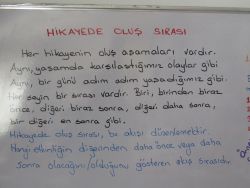 HİKAYEDE OLUŞ SIRASI
Her hikayenin oluş aşamaları vardır.
Aynı, yaşamda karşılaştığımız olaylar gibi
Aynı, bir günü adım adım yaşadığımız gibi.
Her şeyin bir sırası vardır. Biri, birinden biraz
önce, diğeri biraz sonra, diğeri daha sonra,
bir diğeri en sonra gibi.
Hikayede oluş sırası, bu akışı düzenlemektir.
Hangi etkinliğin diğerinden daha önce veya daha
sonra olacağını/olduğunu gösteren akış sırasıdır.